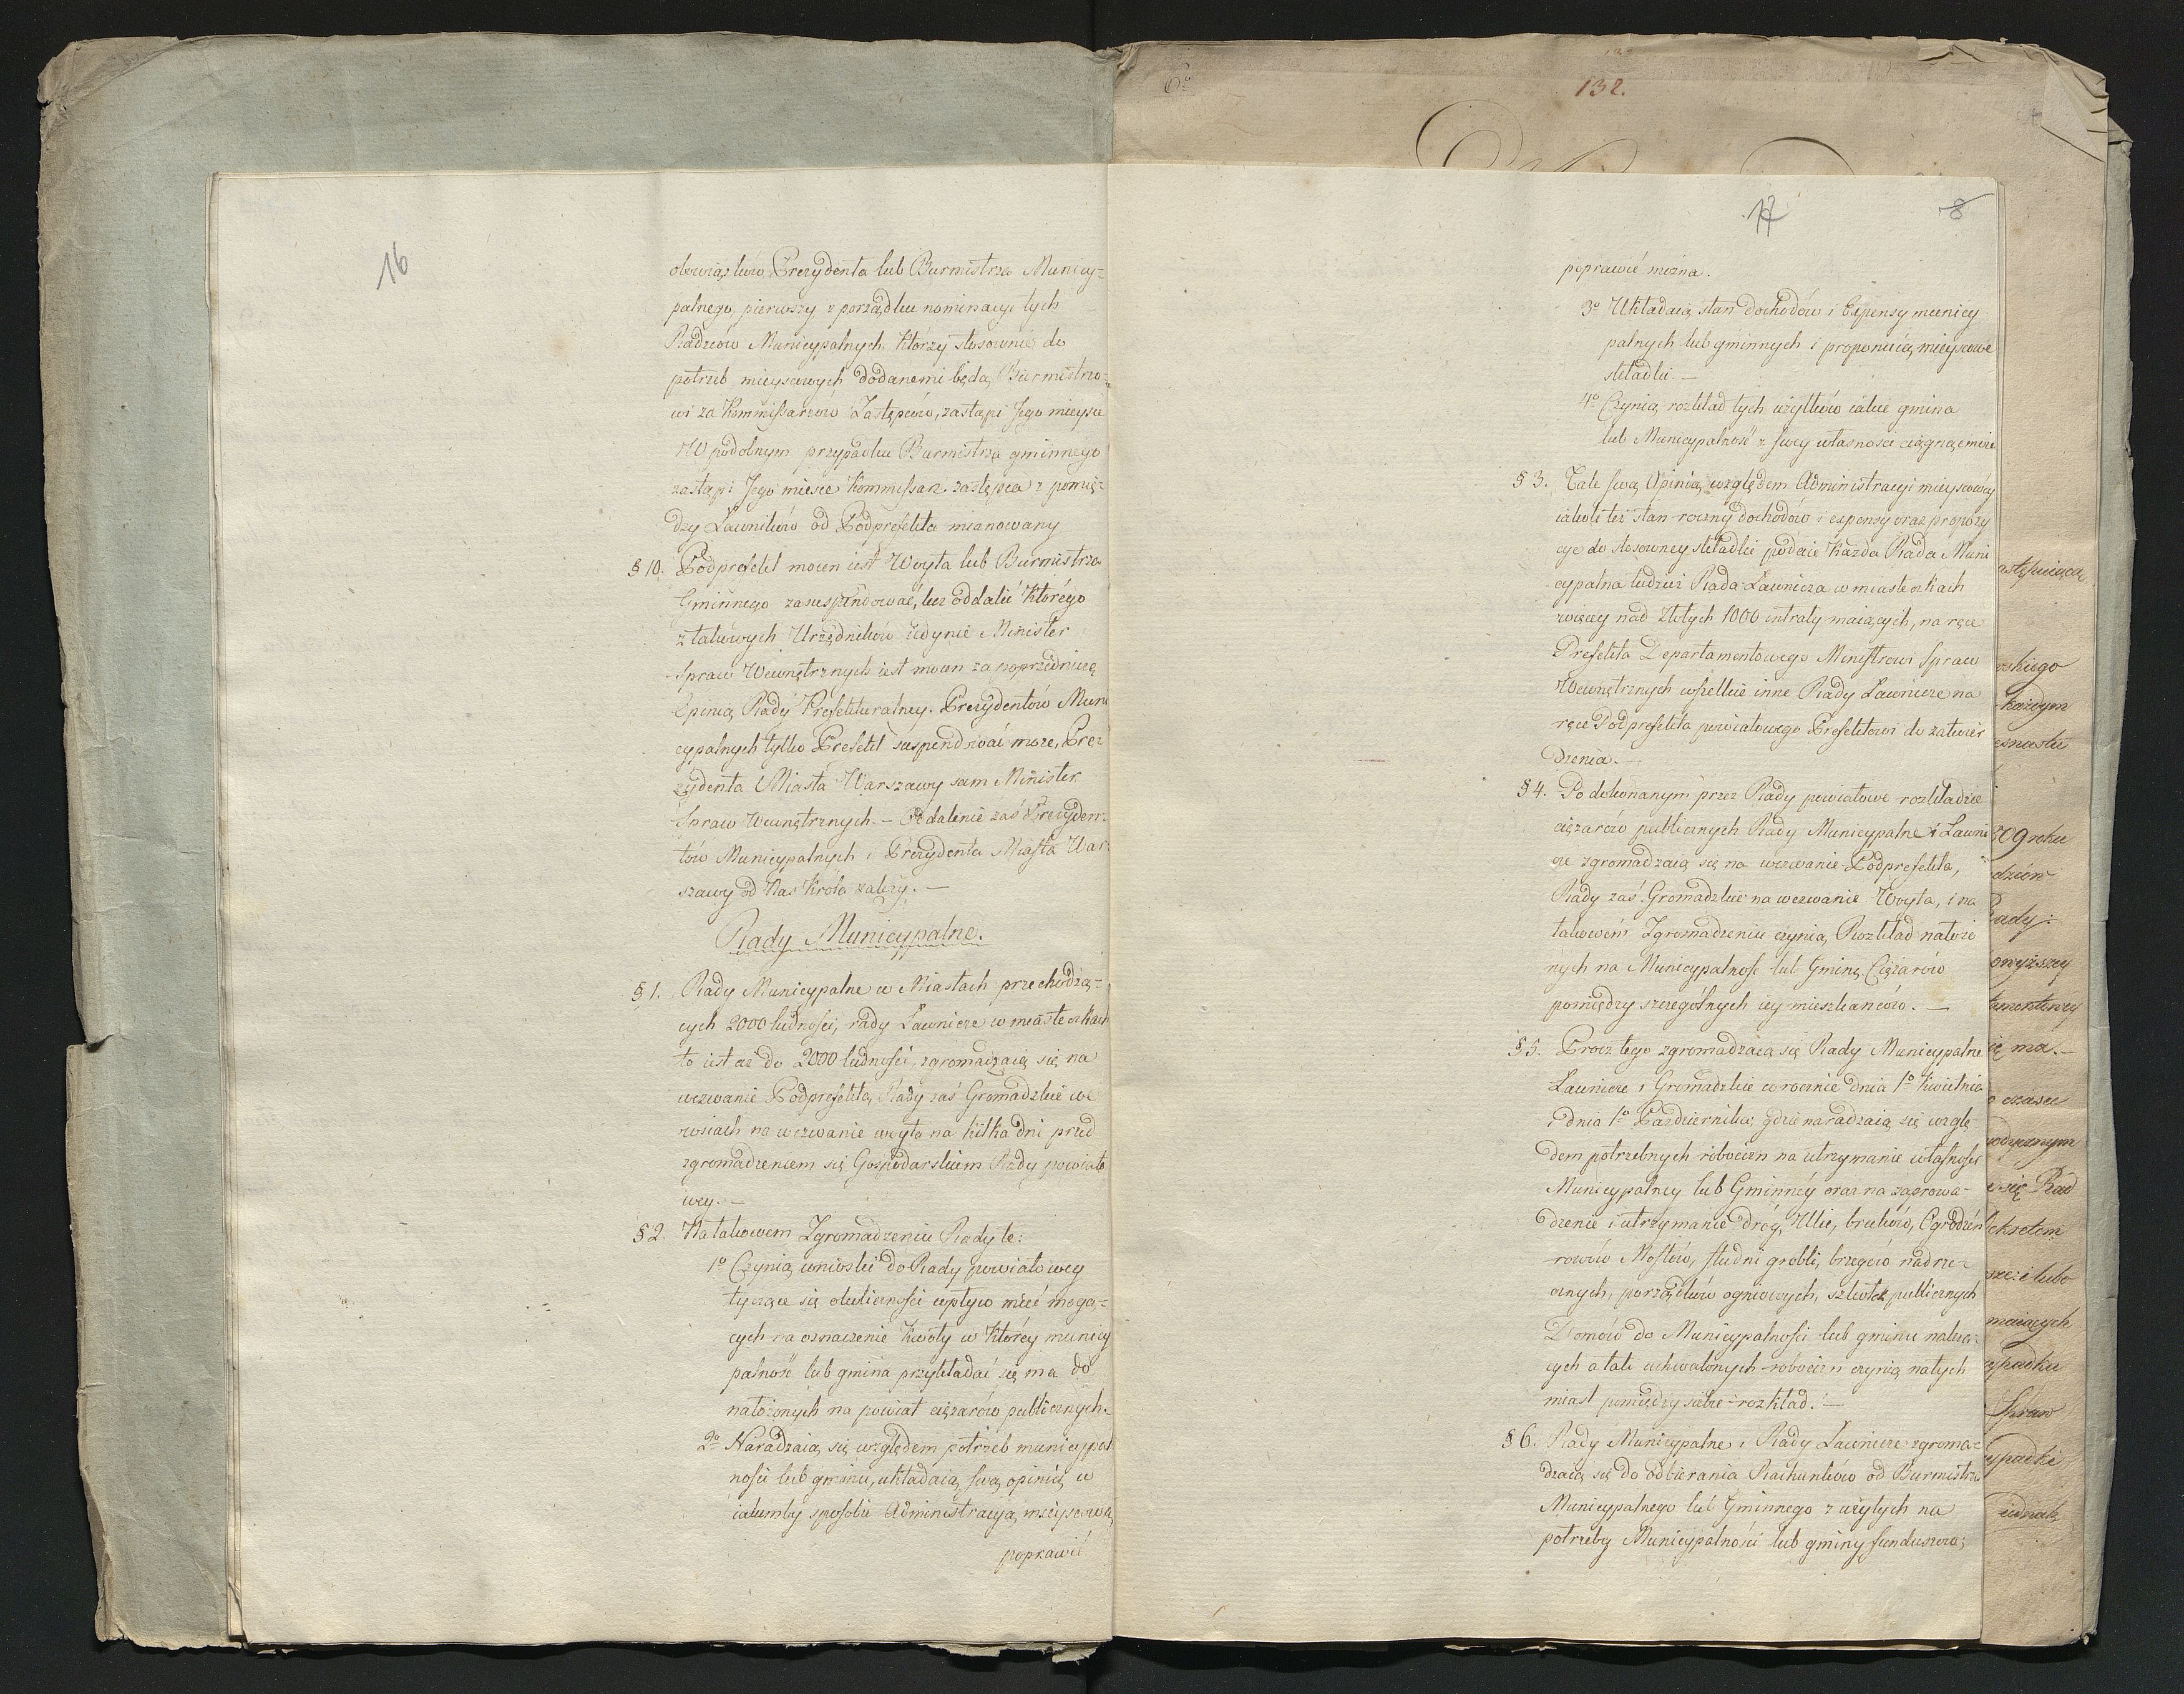 16
obowiązków Prezydenta lub Burmistrza Municy=
palnego, pierwszy z porządku nominacyi tych
Radzców Municypalnych, którzy stosownie do
potrzeb mieyscowych dodanemi będą Burmistrzo=
wi za Kommissarzów Zastępców, zastąpi Jego mieysce
W podobnym przypadku Burmistrza gminnego
zastąpi Jego mieysce Kommissarz zastępca z pomię=
dzy Ławników od Podprefekta mianowany
§ 10. Podprefekt mocen iest Woyta lub Burmistrza
Gminnego zasuspendować, lecz oddalić którego
z takowych Urzędników iedynie Minister
Spraw Wewnętrznych iest mocen za poprzedniczę
Opinią Rady Prefekturalney. Prezydentów Muni
cypalnych tylko Prefekt suspendować może, Pre=
zydenta Miasta Warszawy sam Minister
Spraw Wewnętrznych. – Oddalenie zaś Prezyden=
tów Municypalnych i Prezydenta Miasta War
szawy od Nas Króla zależy. –
Rady Municypalne.
§ 1. Rady Municypalne w Miastach przechodzą=
cych 2000 ludności, rady Ławnicze w miasteczkach
to iest aż do 2000 ludności, zgromadzaią się na
wezwanie Podprefekta, Rady zaś Gromadzkie we
wsiach na wezwanie woyta na kilka dni przed
zgromadzeniem się Gospodarskiem Rady powiato
wey. –
§ 2. Na takowem Zgromadzeniu Rady te:
1º Czynią wnioski do Rady powiatowey
tyczące się okoliczności wpływ mieć mogą=
cych na oznaczenie Kwoty w którey municy
palność lub gmina przykładać się ma do
nałożonych na powiat ciężarów publicznych.
2º Naradzaią się względem potrzeb municypal
ności lub gminu, układaią swą opinią, w
iakimby sposobie Administracyą mieyscową
poprawić
6º
132.
17
8
poprawić można.
3º Układaią stan dochodów i Expensy municy
palnych lub gminnych i proponuią mieyscowe
składki –
4º Czynią rozkład tych użytków iakie gmina
lub Municypalność z swey własności ciągnąć może
§ 3. Take swą Opinią względem Administracyi mieyscowey
iakoli też stan roczny dochodów i expensy oraz propozy
cye do stosowney składki podaie każda Rada Muni
cypalna tudzież Rada Ławnicza w miasteczkach
więcey nad Złotych 1000 intraty maiących, na ręce
Prefekta Departamentowego Ministrowi Spraw
Wewnętrznych wszelkie inne Rady Ławnicze na
ręce Podprefekta powiatowego Prefektowi do zatwier
dzenia. –
§ 4. Po dokonanym przez Rady powiatowe rozkładzie
ciężarów publicznych Rady Municypalne i Ławni
cze zgromadzaią się na wezwanie Podprefekta,
Rady zaś Gromadzkie na wezwanie Woyta, i na
takowém Zgromadzeniu czynią Rozkład nałożo
nych na Municypalność lub Gminę Ciężarów
pomiędzy szczególnych iey mieszkańców. –
§ 5. Procz tego zgromadzaią się Rady Municypalne
Ławnicze i Gromadzkie corocznie dnia 1º Kwietnia
i dnia 1º Października, gdzie naradzaią się wzglę
dem potrzebnych robocizn na utrzymanie własności
Municypalney lub Gminney oraz na zaprowa=
dzenie i utrzymanie dróg, Ulic, bruków, Ogrodzeń
rowów Mostów, studni grobli, brzegów nadrze=
cznych, porządków ogniowych, szkółek publicznych
Domów do Municypalności lub gminu należą=
cych a tak uchwalonych robocizn czynią natych
miast pomiędzy siebie rozkład. –
§ 6. Rady Municypalne i Rady Ławnicze zgroma=
dzaią się do odbierania Rachunków od Burmistrza
Municypalnego lub Gminnego z użytych na
potrzeby Municypalności lub gminy funduszów;
astępuiącą
rskiego
każdym
809 roku
Rady:
owyższey
tamentowey
ę ma. –
czasu
się Rad
ekretem
sze: i lubo
maiących
ypadku
Spraw
ypadki
iednak